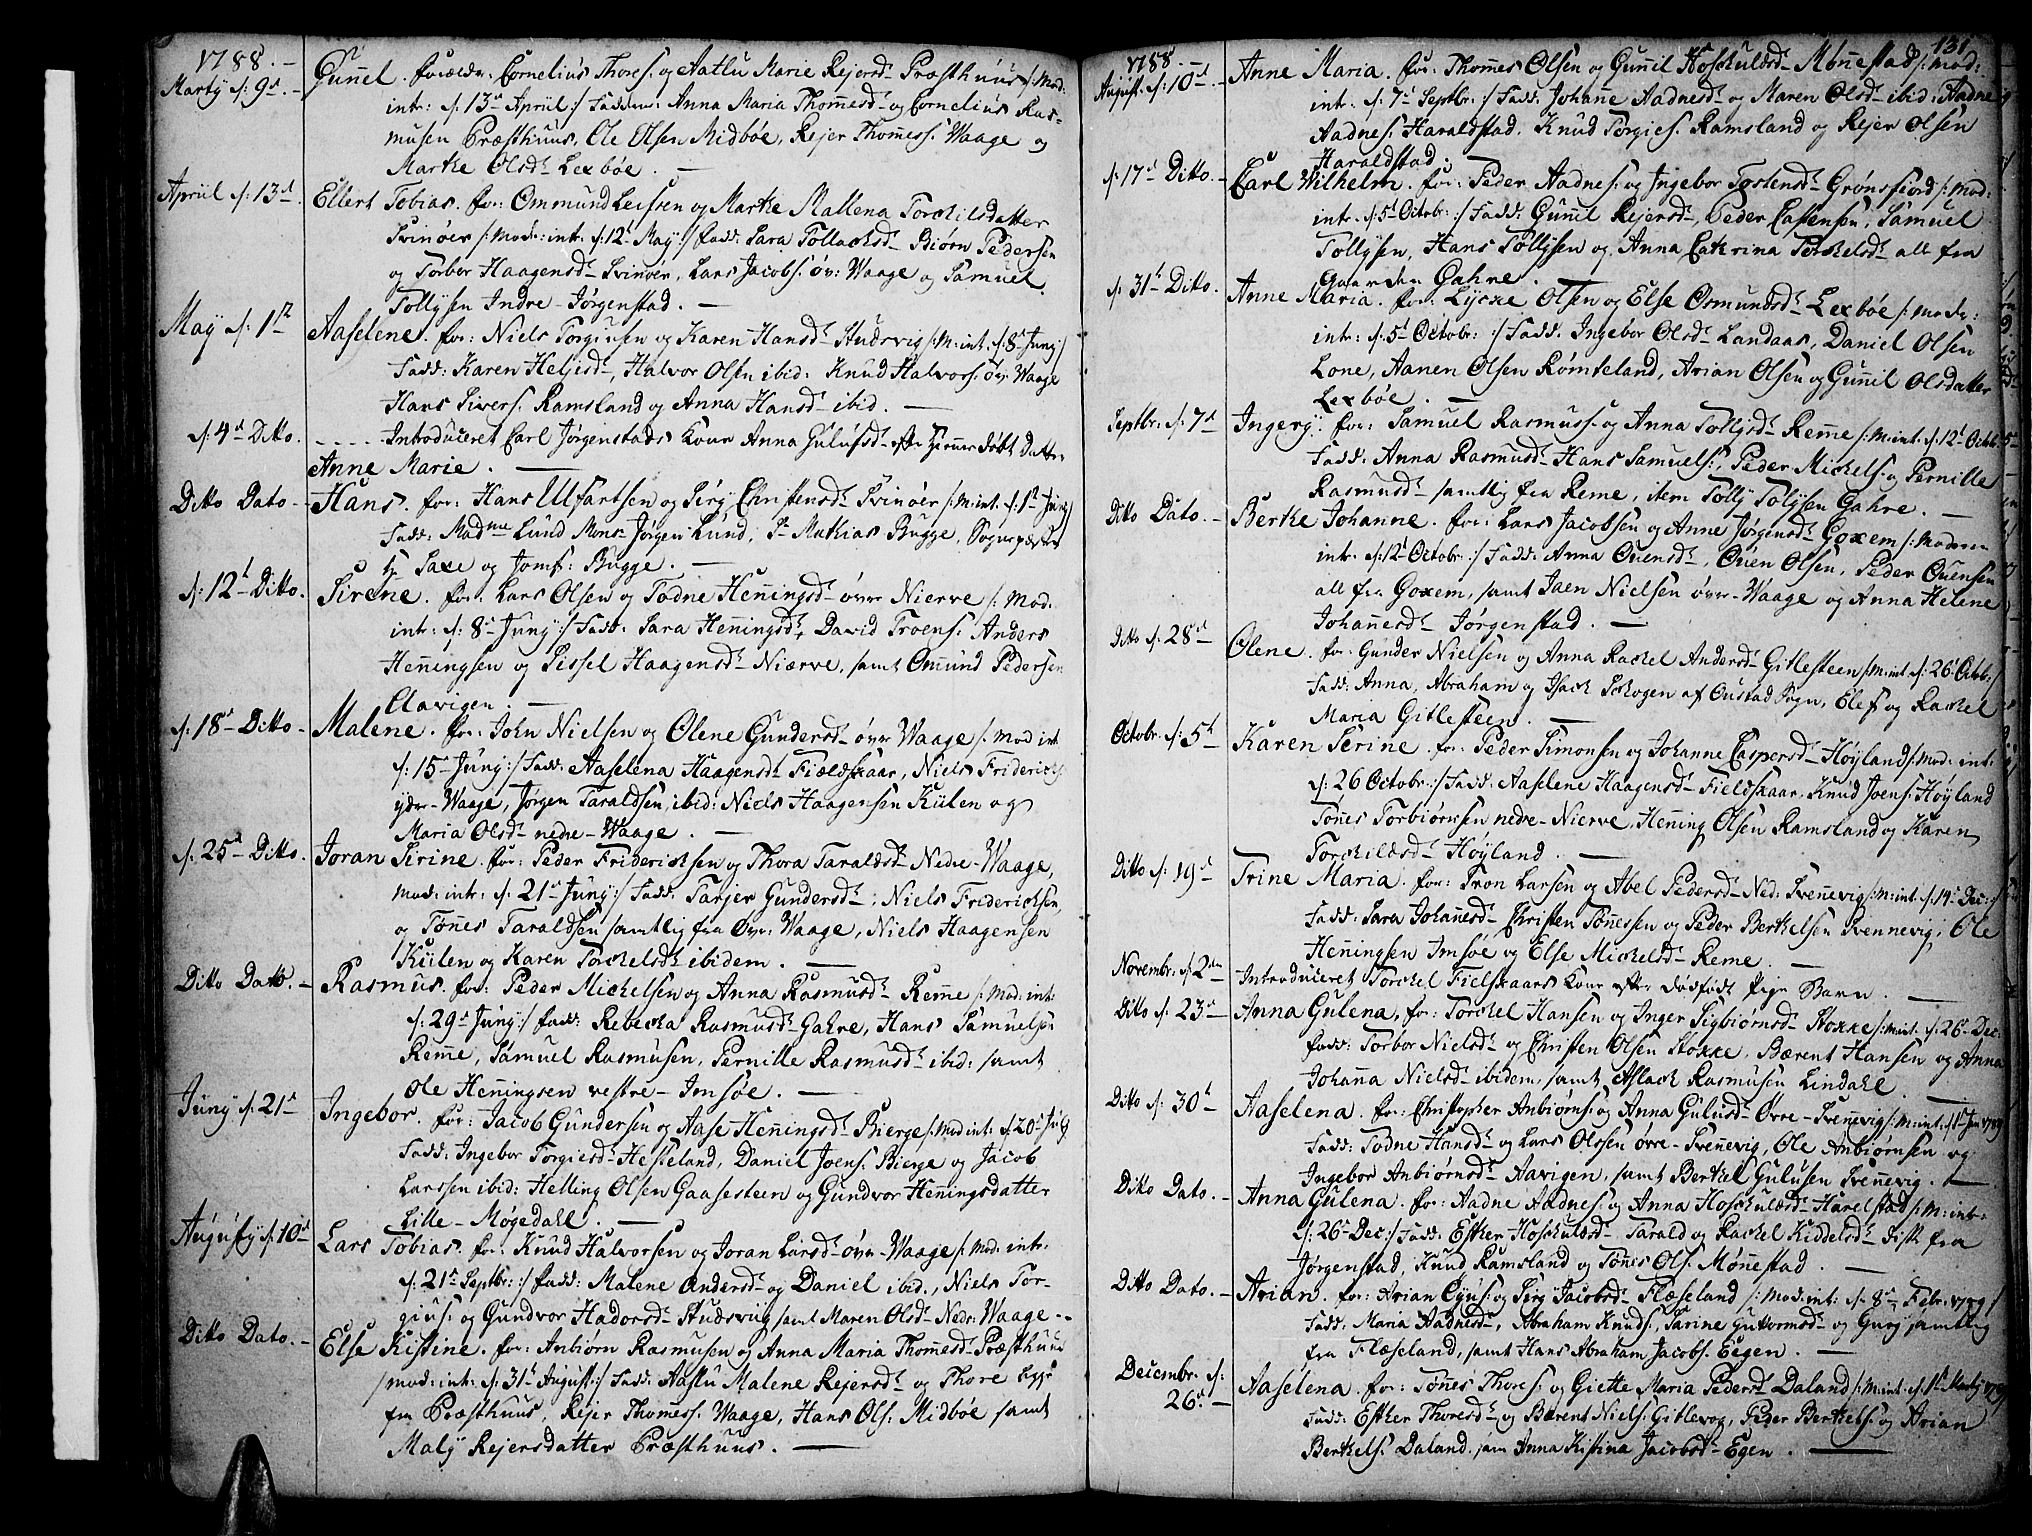 1788. -
Marty s: 9de. - Gunnel. forældr: Cornelius Thores: og Aatlu Marie Rejersdr Præsthuus /: Mod:
intr: s: 13de Apriil :/ Fadderne: Anna Maria Thommesdr og Cornelius Ras=
musen Præsthuus, Ole Olsen Midbøe, Rejer Thomess: Waage og
Marthe Olsdr Lexbøe. -
Apriil s: 13de. Ellert Tobias. for: Ommund Leifsen og Marthe Mallena Torchilsdatter
Svinøer /: Modr: intr: s: 12te May :/ fadd: Sara Tollachsdr Biørn Pedersen
og Torbor Haagensdr Svinøer, Lars Jacobs: øvr: Waage og Samuel
Tollysen Indre - Jørgenstad. -
May s: 1ste Aaselene. for: Niels Torgiusen og Karen Hansdr Studsvig /: M: int: s: 8de Juny :/
Fadd: Karen Heljesdr, Halvor Olsen ibid: Knud Halvors: øvr Waage
Hans Sivers: Ramsland og Anna Hansdr ibid. -
s: 4de Ditto. - - - - Introduceret Carl Jørgenstads Kone Anna Gulufsdr efter hjemmedøbt Datter
Anne Marie. -
Ditto Dato - Hans. for: Hans Ulfartsen og Siry Christensdr Svinøer /: M: int. s: 1te Juny /
Fadd: Madme Lund Mons: Jørgen Lund, Sr Mathias Bugge, Sognepræsten
Hr Saxe og Jomf: Bugge. -
s: 12te Ditto. Sirene. for: Lars Olsen og Todne Henningsdr øvre Nierve /: Mod.
intr: s: 8de Juny :/ Fadd: Sara Henningsdr, David Troens: Anders
Henningsen og Sissel Haagensdr Niærve, samt Ommund Pedersen
Clavigen. -
s: 18de Ditto - Malene. for: John Nielsen og Olene Gundersdr øvr Waage /: Mod int:
s: 15de Juny :/ Fadd: Aaselena Haagensdr Fieldskaar, Niels Friderichs:
ydre - Waage, Jørgen Taraldsen ibid: Niels Haagensen Kulen og
Maria Olsdr nedre - Waage. -
s: 25de Ditto. Joran Sirine. for: Peder Friderichsen og Thora Taraldsdr Nedre - Waage,
Mod: intr: s: 21de Juny :/ Fadd: Tarjer Gundersdr; Niels Friderichsen,
og Tønnes Taraldsen samtlig fra Øvr: Waage, Niels Haagensen
Kulen og Karen Torchelsdr ibidem. -
Ditto Dato. - Rasmus. for: Peder Michelsen og Anna Rasmusdr Remme /: Mod: int:
s: 29de Juny :/ fadd: Rebecka Rasmusdr Gahre, Hans Samuelsen
Remme, Samuel Rasmusen, Pernille Rasmusdr ibid: samt
Ole Henningsen vestre - Imsøe. -
Juny s: 21de Ingebor. for: Jacob Gundersen og Aase Henningsdr Bierge /: Mod int: s: 20de July
Fadd: Ingebor Torgiesdr Heseland, Daniel Joens: Bierge og Jacob
Larssen ibid: Helling Olsen Gaasesteen og Gundvor Henningsdatter
Lille - Møgedahl. -
Augusty s: 10de Lars Tobias. for: Knud Halvorsen og Joran Larsdr øvr - Waage /: Mod: intr:
s: 21de Septbr: :/ fadd: Malene Andersdr og Daniel ibid., Niels Tor-
gius: og Gundvor Hadorsdr Studsvig samt Maren Olsdr Nedr: Waage - -
Ditto Dato. - Else Kistine. for: Anbiørn Rasmusen og Anna Maria Thomesdr Præsthuus
/ mod: int: s: 31te August :/ Fadd: Aaslu Malene Rejersdr og Thore begge
fra Præsthuus, Rejer Thomess: Waage, Hans Ols: Midbøe samt
Maly Rejersdatter Præsthuus. -
131
1788. -
August. s: 10de. - Anne Maria. for: Thomes Olsen og Gunnil Hoskuldsdr Mønnestad /: Mod:
intr: s: 7de Septbr: :/ Fadd: Johanne Aadnesdr og Maren Olsdr ibid: Aadne
Aadnes: Haraldstad. Knud Torgies: Ramsland og Rejer Olsen
Haraldstad.
s: 17de Ditto. - Carl Wilhelm. for: Peder Aadnes: og Ingebor Tostensdr Grønsfiord /: Mod:
intr. s: 5te Octobr: :/ Fadd: Gunil Rejersdr, Peder Casensen, Samuel
Tollysen, Hans Tollysen og Anna Cathrina Torchelsdr alt fra
Gaarden Gahre.
s: 31te Ditto. Anne Maria. for: Lycke Olsen og Else Osmundsdr Lexbøe /: Modr:
intr: s: 5te Octobr: :/ Fadd. Ingebor Olsdr Landaas, Daniel Olsen
Lone, Aanen Olsen Rømteland, Arian Olsen og Gunil Olsdatter
Lexbøe. -
Septbr: s: 7de Ingery. for: Samuel Rasmuss: og Anna Tollysdr Remme /: M: int. s: 12te Octb:
Fadd: Anna Rasmusdr Hans Samuels:, Peder Michels: og Pernille
Rasmusdr samtlig fra Reme, item Tolly Tollysen Gahre. -
Ditto Dato. - Berthe Johanne. for: Lars Jacobsen og Anne Jørgensdr Goxem /: Moderen
intr. s: 12te Octobr: :/ Fadd: Anna Ouensdr, Ouen Olsen, Peder Ouensen
alt fra Goxem, samt Jaen Nielsen øvr - Waage og Anna Helene
Johannesdr Jørgenstad. -
Ditto s: 28de Olene. for: Gunder Nielsen og Anna Rachel Andersdr Gitlesteen /: M: int. s: 26de Octob:/
Fadd: Anna, Abraham og Isach Schogen af Oustad Sogn, Elef og Rachel
Maria Gitlesteen. -
Octobr. s: 5te Karen Serine. for: Peder Simonsen og Johanne Caspersdr Høyland /: Mod: int:
s: 26 Octobr. :/ Fadd: Aaselene Haagensdr Fieldskaar, Knud Joens: Høyland
Tønes Torbiørnsen nedre - Nierve, Hening Olsen Ramsland og Karen
Torchildsdr Høyland. -
Ditto s: 19de Trine Maria. for: Tron Larsen og Abel Pedersdr Ned: Svennevig /: M: int. s: 14de Dec: :/
Fadd: Sara Johannesdr Christen Tønnessen og Peder Berthelsen Svennevig, Ole
Henningsen Imsøe og Else Michelsdr Reme. -
Novembr: s: 2den Introduceret Torchel Fielskaars Kone efter Dødfødt Pige Barn. -
Ditto s: 23de Anna Gulena, for: Torchel Hansen og Inger Sigbiørnsdr Stokke /: M: int. s: 26de Dec:
fadd: Torbor Nielsdr og Christen Olsen Stokke, Bærent Hansen og Anna
Johanna Nielsdr ibidem, samt Aslach Rasmusen Lindahl. -
Ditto s: 30te Aaselena. for: Christopher Anbiørns: og Anna Gulusdr Øvre - Svennevig /: M: int: s: 1te Jan 1789
Fadd: Todne Hansdr og Lars Olssen øvre - Svenevig, Ole Anbiørnsen og
Ingebor Anbiørnsdr Aavigen, samt Berthel Gulusen Svenevig. -
Ditto Dato. - Anna Gulena. for: Aadne Aadnes: og Anna Hoschuldsdr Harelstad /: M: int:
s: 26de Dec :/ Fadd: Esther Hoschuldsdr Tarald og Rachel Kiddelsdr disse fra
Jørgenstad, Knud Ramsland og Tønes Ols: Mønnestad. -
Ditto Dato. - Arian. for: Arian Gjus: og Siry Jacobsdr Flæseland /: Mod: int: s: 8de Febr: 1789 /
Fadd: Maria Aadnesdr, Abraham Knuds:, Sarine Guttormsdr og Gury samtlig
fra Flæseland, samt Hans Abraham Jacobs: Eegen. -
Decembr. s:
26de. - Aaselena. for: Tønnes Thores: og Giette Maria Pedersdr Daland /: M: int. s: 1te Marty 1789 /
Fadd: Esther Thoresdr og Bærent Niels: Gitlevog, Peder Berthels: og Arian
Berthels: Daland, sam Anna Kistina Jacobsdr Egen. -